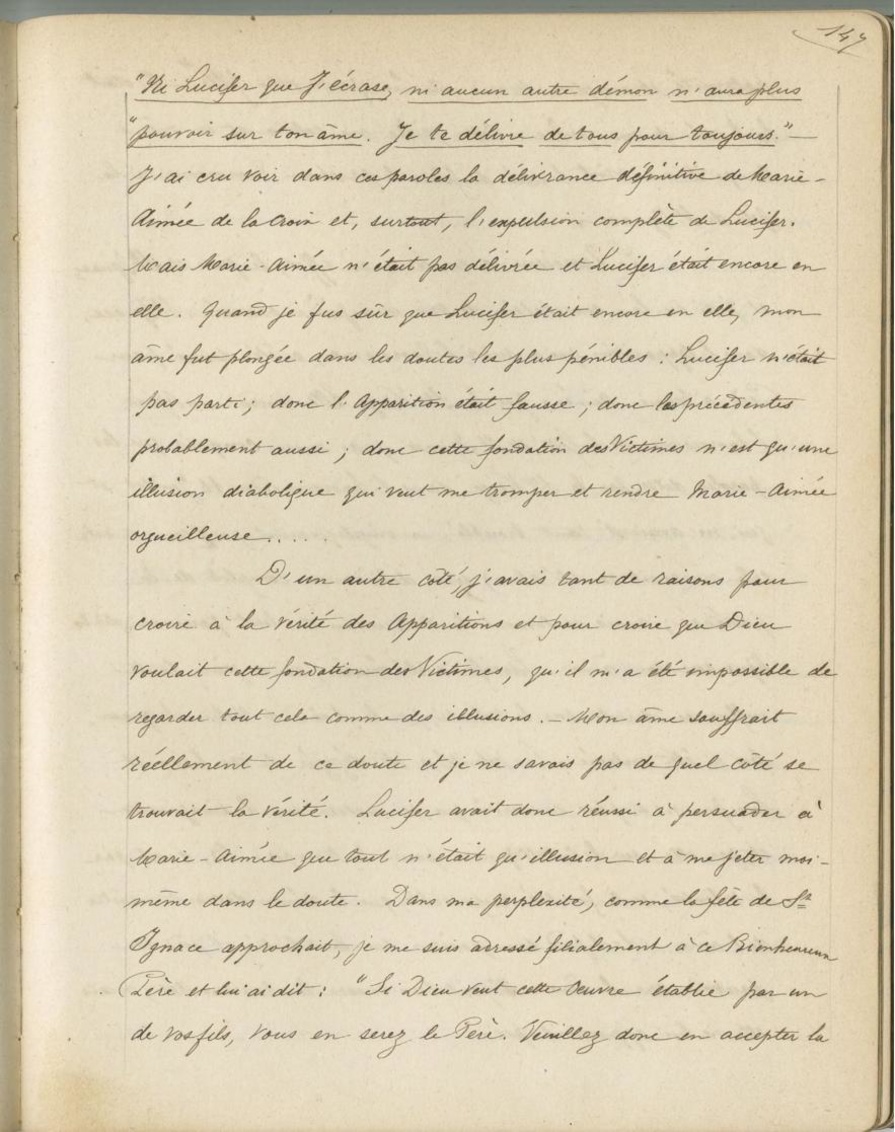 147
"Ni Lucifer que J'écrase, ni aucun autre démon n'aura plus
"pouvoir sur ton âme. Je te délivre de tous pour toujours." —
J'ai cru voir dans ces paroles la délivrance définitive de Marie-
Aimée de la Croix et, surtout, l'expulsion complète de Lucifer.
Mais Marie-Aimée n'était pas délivrée et Lucifer était encore en
elle. Quand je fus sûr que Lucifer était encore en elle, mon
âme fut plongée dans les doutes les plus pénibles : Lucifer n'était
pas parti ; donc l'Apparition était fausse ; donc les précédentes
probablement aussi ; donc cette fondation des Victimes n'est qu'une
illusion diabolique qui veut me tromper et rendre Marie-Aimée
orgueilleuse.....
D'un autre côté, j'avais tant de raisons pour
croire à la vérité des Apparitions et pour croire que Dieu
voulait cette fondation des Victimes, qu'il m'a été impossible de
regarder tout cela comme des illusions. — Mon âme souffrait
réellement de ce doute et je ne savais pas de quel côté se
trouvait la vérité. Lucifer avait donc réussi à persuader à
Marie-Aimée que tout n'était qu'illusion et à me jeter moi-
même dans le doute. Dans ma perplexité, comme la fête de St
Ignace approchait, je me suis adressé filialement à ce Bienheureux
Père et lui ai dit : "Si Dieu veut cette Œuvre établie par un
de vos fils, vous en serez le Père. Veuillez donc en accepter la